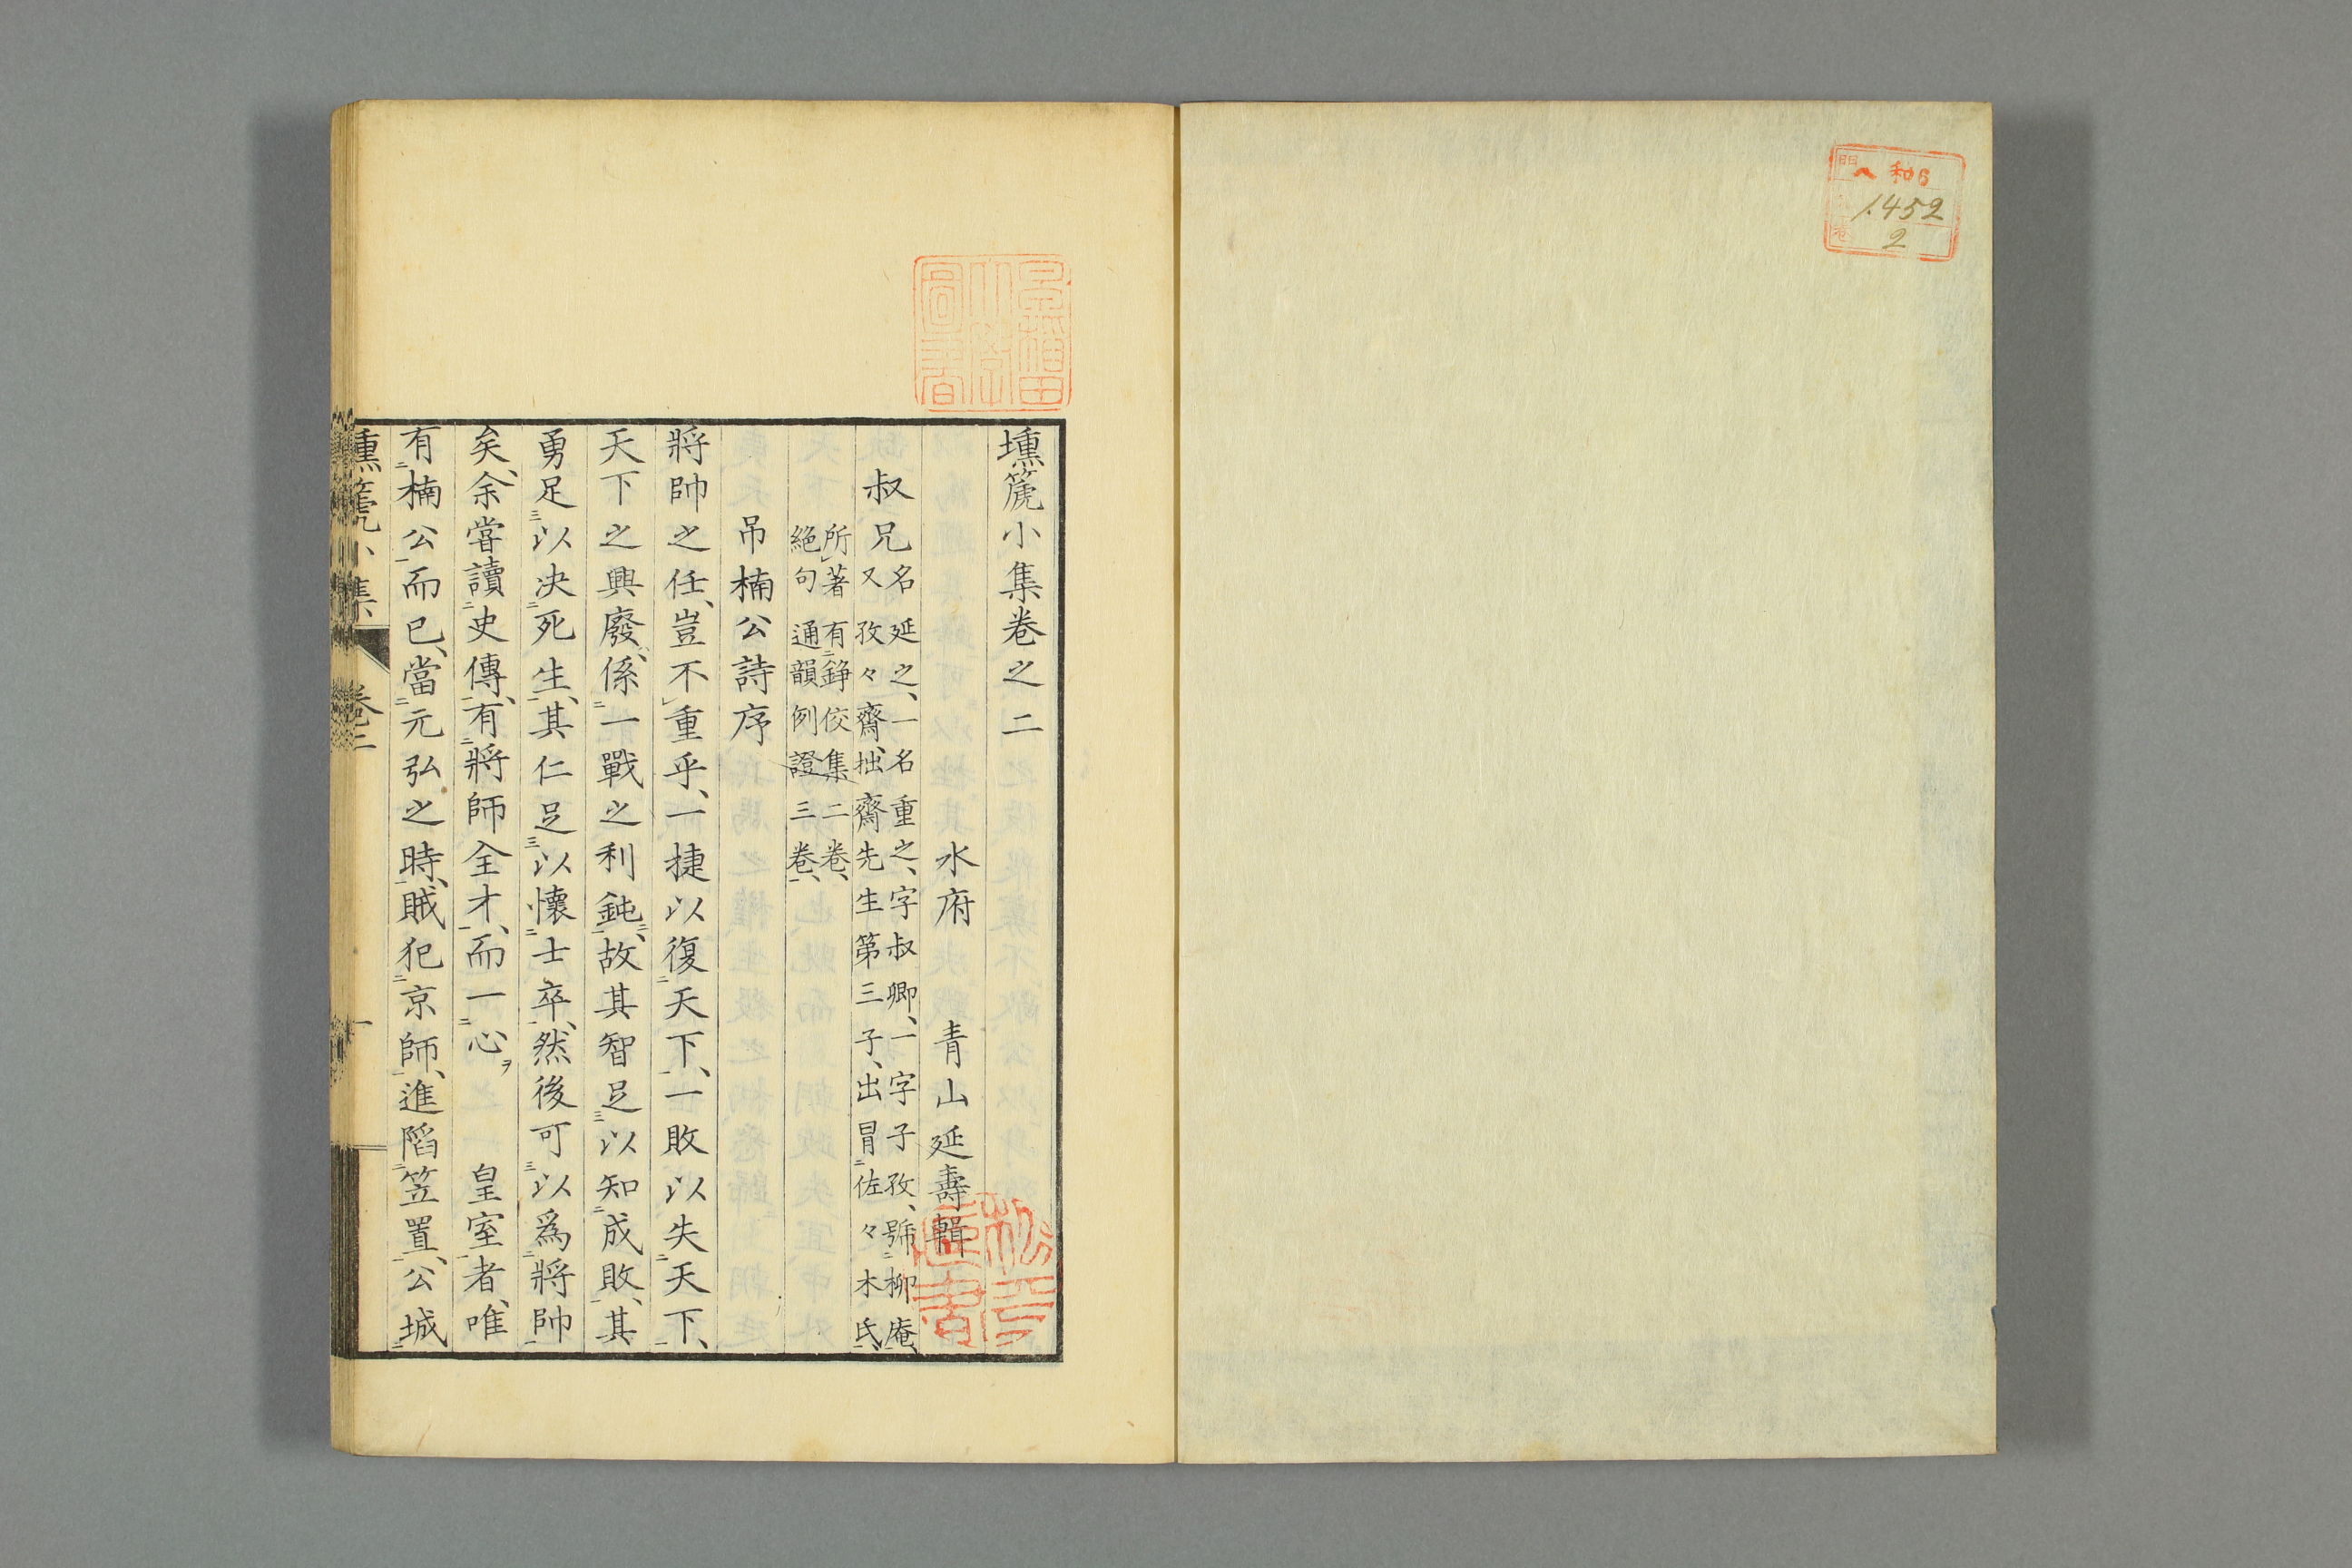 和6
1452
2
壎篪小集卷之二
水府　青山延壽輯
叔兄名延之、一名重之、字叔卿、一字子孜、號柳庵、
又孜々齋、拙齋先生第三子、出冒佐々木氏、
所著有錚佼集二卷、
絕句通韻例證三卷、
吊楠公詩序
將帥之任、豈不重乎、一捷以復天下、一敗以失天下、
天下之興廢、係一戰之利鈍、故其智足以知成敗、其
勇足以决死生、其仁足以懷士卒、然後可以爲將帥
矣、余嘗讀史傳、有將師全才、而一心　皇室者、唯
有楠公而已、當元弘之時、賊犯京師、進陷笠置、公城
壎篪小集　卷二　一